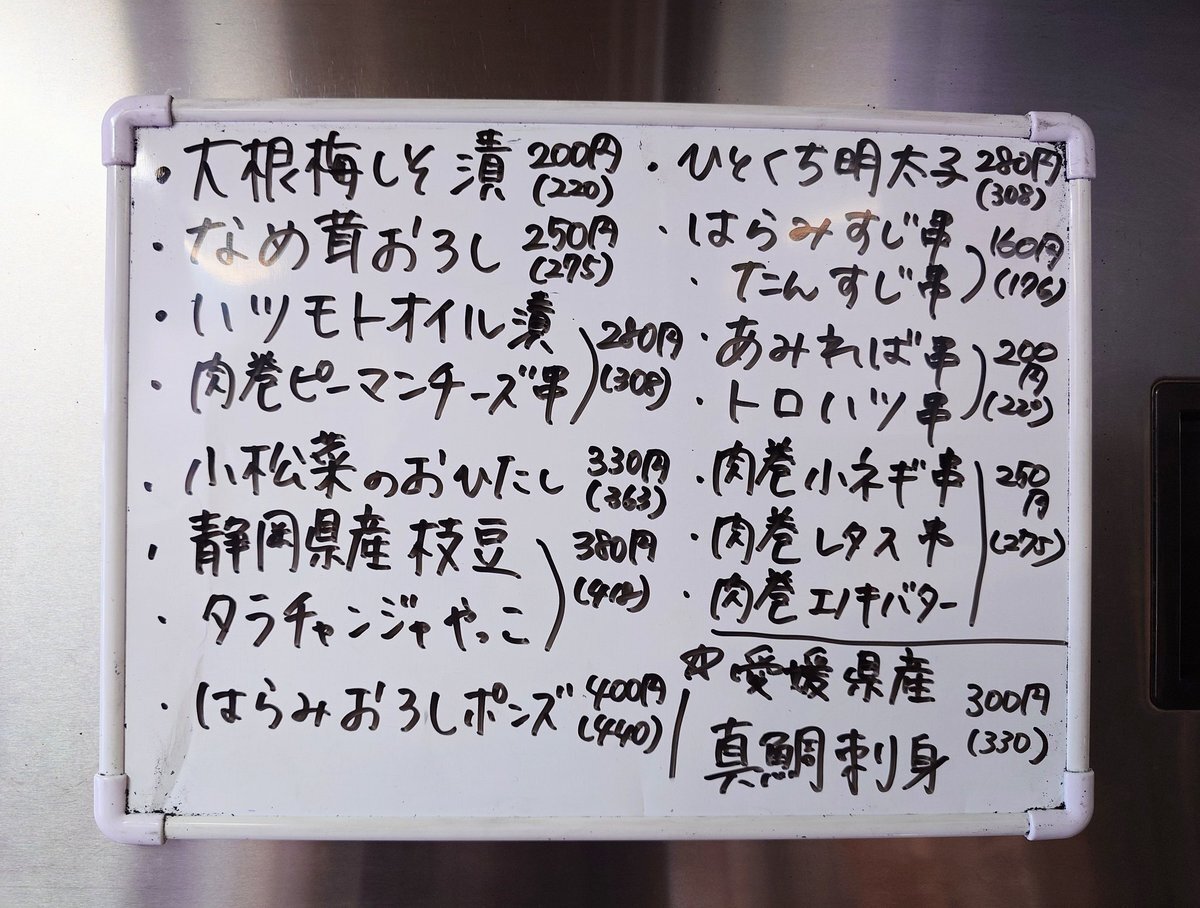 ・大根梅しそ漬 200円
(220)
・なめ茸おろし 250円
(275)
・ハツモトオイル漬
・肉巻ピーマンチーズ串 280円
(308)
・小松菜のおひたし 330円
(363)
・静岡県産枝豆 380円
・タラチャンジャやっこ (418)
・はらみおろしポンズ 400円
(440)
・ひとくち明太子 280円
(308)
・はらみすじ串 160円
・たんすじ串 (176)
・あみればば串 200円
・トロハツ串 (220)
・肉巻小ネギ串 250円
・肉巻レタス串 (275)
・肉巻エノキバター
☆愛媛県産 300円
真鯛刺身 (330)